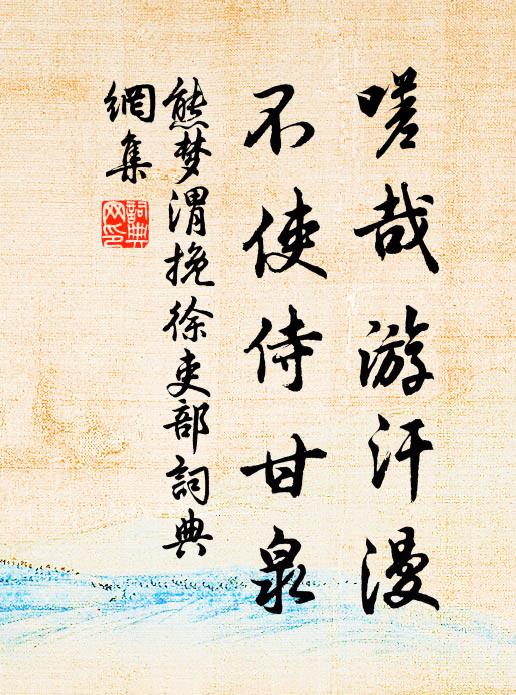 嗟哉游汗漫
不使侍甘泉
熊梦渭挽徐吏部詞典
網集
詞典網印